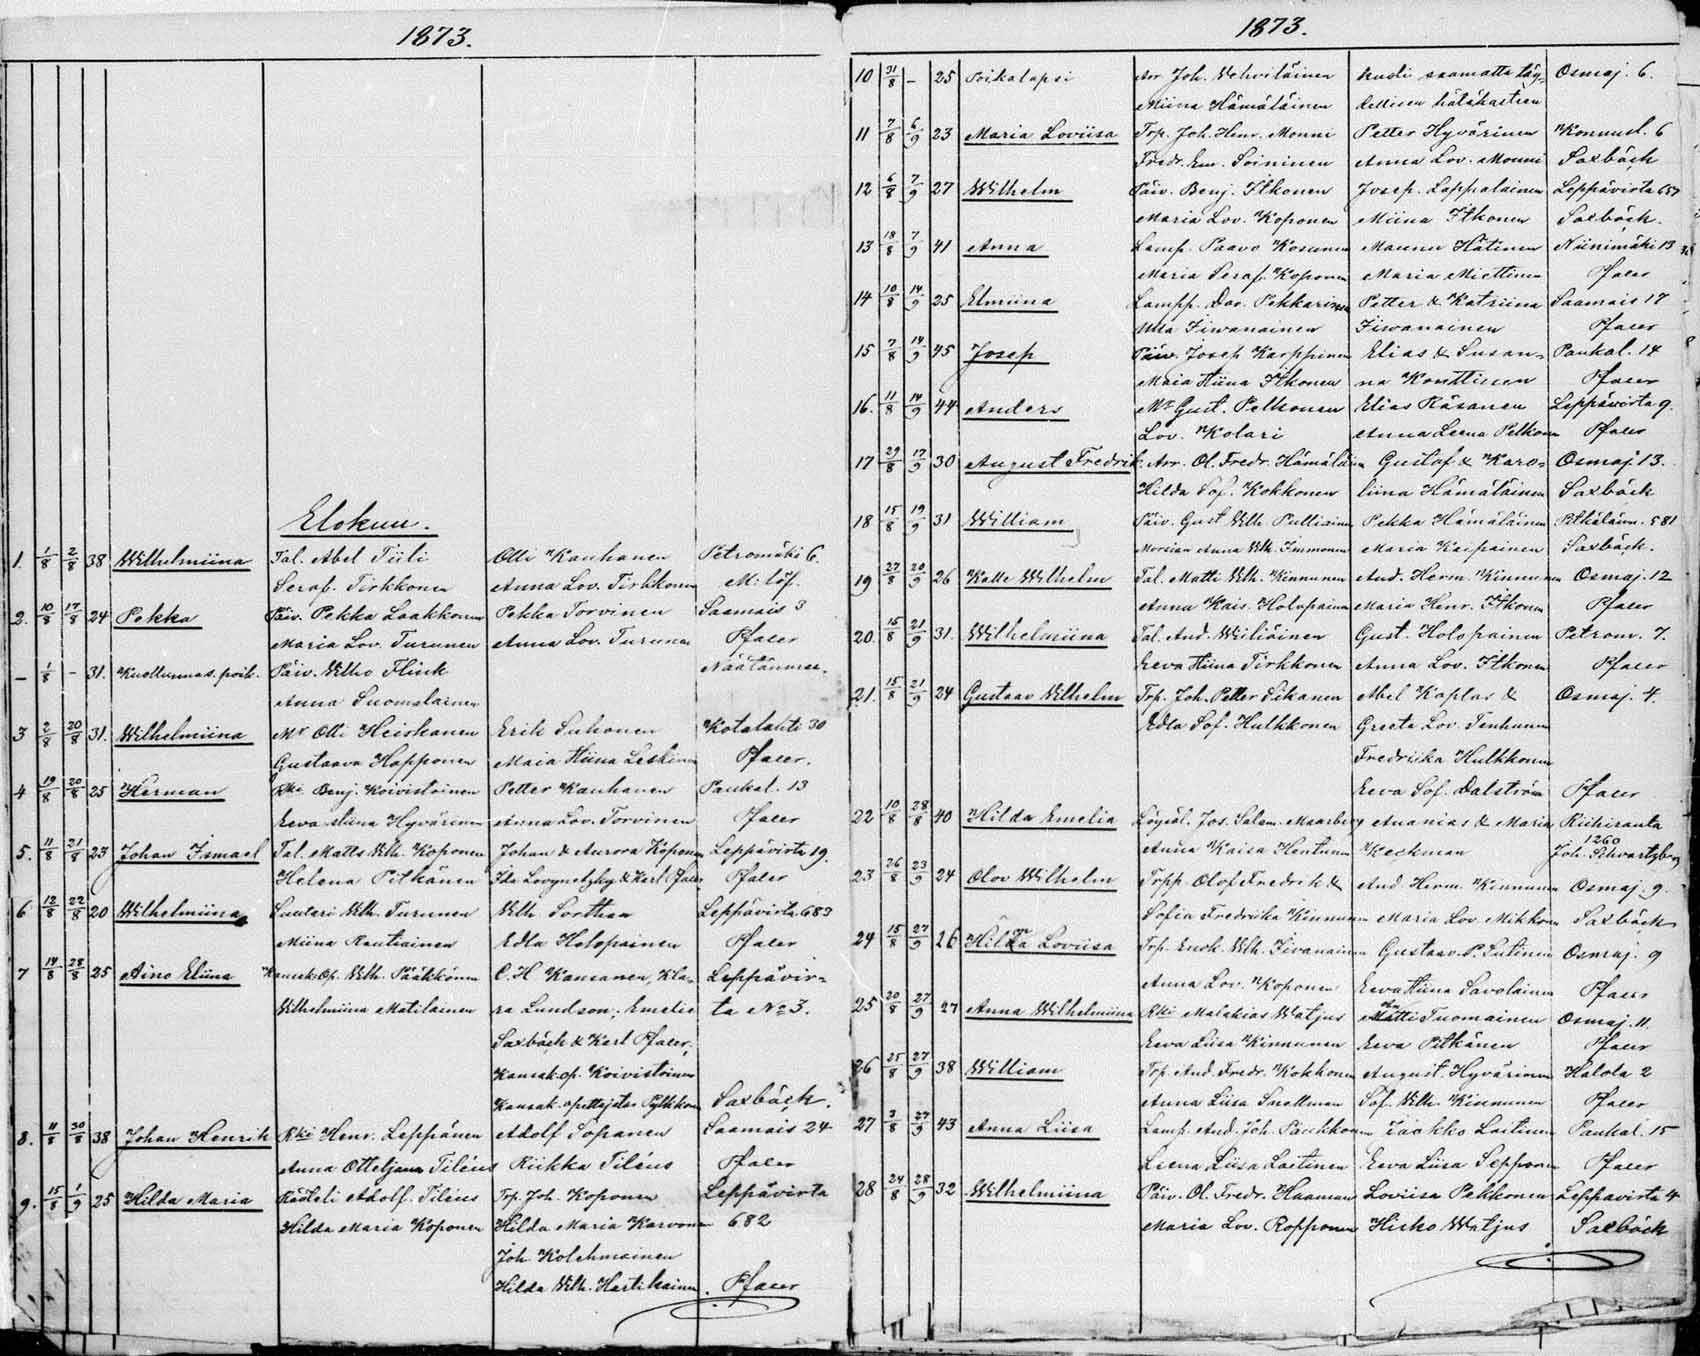 1873.
Elokuu.
1. 1/8 2/8 38 Wilhelmiina Tal. Abel Tiili Otti Kauhanen Petromäki 6.
Seraf. Tirkkonen Anna Lov. Tirkkonen M. Löf.
2. 10/8 17/8 24 Pekka Päiv. Pekka Laakkonen Pekka Torvinen Saamais 3
Maria Lov. Turunen Anna Lov. Turunen Pfaler
– 1/8 – 31. Kuollunnas. poik. Päiv. Wilho Flink
Anna Suomalainen
3 2/8 20/8 31. Wilhelmiina Mr Otti Heiskanen Erik Suhonen Kotalahti 30
Gustaava Happonen Maia Stiina Leskinen Pfaler.
4 19/8 20/8 25 Herman Rki Benj. Koivistoinen Petter Kauhanen Paukal. 13
Eeva Stiina Hyvärinen Anna Lov. Torvinen Pfaler
5. 11/8 21/8 23 Johan Ismael Tal. Matts Wilh. Koponen Johan & Aurora Koponen Leppävirta 19.
Helena Pitkänen Ida & Karl Pfaler Pfaler
6. 12/8 22/8 20 Wilhelmiina Suutari Wilh. Turunen Wilh. Sorthan Leppävirta 683
Miina Rautiainen Edla Holopainen Pfaler
7 14/8 28/8 25 Aino Eliina Kansak. Op. Wilh. Pääkkönen C. H Kansanen, Kla- Leppävir-
Wilhelmiina Matilainen ra Lundson, Emelie ta No 3.
Saxbäck & Karl Pfaler,
Kansak. op. Koivistoinen
Kansak. opettajatar Pylkkönen Saxbäck.
8. 11/8 30/8 38 Johan Henrik Rki Henr. Leppänen Adolf Sopanen Saamais 24
Anna Ottetjana Tiléus Riikka Tiléus Pfaler
9. 15/8 1/9 25 Hilda Maria Räätäli Adolf. Tiléus Trp. Joh. Koponen Leppävirta
Hilda Maria Koponen Hilda Maria Karvonen 682
Joh Kolehmainen
Hilda Wilh. Hartikainen. Pfaler
1873.
10 31/8 – 25 Poikalapsi Arr Joh. Vehviläinen kuoli saamatta täy-
Osmaj. 6.
Miina Hämäläinen dellisen hätäkasteen
11 7/8 6/9 23 Maria Loviisa Trp. Joh. Henr. Monni Petter Hyvärinen Konnusl. 6
Fredr. Em. Soininen Anna Lov. Monni Saxbäck
12 6/8 7/9 27 Wilhelm Päiv. Benj. Itkonen Josep. Lappalainen Leppävirta 657
Maria Lov. Koponen Miina Itkonen Saxbäck.
13 18/8 7/9 41 Anna Lamp. Paavo Kosunen Maunu Hätinen Niinimäki 13
Maria Seraf. Koponen Maria Miettinen Pfaler
14 10/8 14/9 25 Elmiina Lampp. Dav. Pekkarinen Petter & Katriina Saamais 17
Ulla Iivanainen Iivanainen Pfaler
15 7/8 14/9 45 Josep Päiv. Josep Karppinen Elias & Susan- Paukal. 14
Maia Stiina Itkonen na Konttinen Pfaler
16. 11/8 14/9 44 Anders Mr Gust. Pelkonen Elias Räsänen Leppävirta 9.
Lov. Kolari Anna Leena Pelkonen Pfaler
17 29/8 17/9 30 August Fredrik Arr. Ol. Fredr. Hämäläinen Gustaf & Karo- Osmaj. 13.
Hilda Sof. Kokkonen liina Hämäläinen Saxbäck
18 15/8 19/9 31 William Päiv. Gust Wilh Pulliainen Pekka Hämäläinen Pitkälänn. 581
Morsian Anna Wilh. Immonen Maria Keipainen Saxbäck.
19 27/8 20/9 26 Kalle Wilhelm Tal. Matti Wilh. Kinnunen And. Herm. Kinnunen Osmaj. 12
Anna Kais. Holopainen Maria Henr. Itkonen Pfaler
20. 15/8 21/9 31. Wilhelmiina Tal. And. Wiiliäinen Gust. Holopainen Petrom. 7.
Eeva Stiina Tirkkonen Anna Lov. Itkonen Pfaler
21. 15/8 21/9 24 Gustaav Wilhelm Trp. Joh. Petter Sikanen Abel Kaplas & Osmaj. 4.
Edla Sof. Hulkkonen Greeta Lov. Tenhunen
Fredriika Hulkkonen
Eeva Sof. Dalström Pfaler
22 10/8 28/8 40 Hilda Emelia Jos. Salom. Maarberg Ananias & Maria Riikiranta
Anna Kaisa Hentunen Keckman 1260
Joh. Schvartzberg
23 26/8 23/9 24 Olov Wilhelm Trpp. Olof Fredrik & And. Herm. Kinnunen Osmaj. 9.
Sofia Fredrika Kinnunen Maria Lov. Mikkonen Saxbäck
24 15/8 27/9 26 Hilda Loviisa Trp. Enok. Wilh. Iivanainen Gustaav. P. Sutinen Osmaj. 9
Anna Lov. Koponen Eeva Stiina Savolainen Pfaler
25 20/8 27/9 27 Anna Wilhelmiina Rki Malakias Watjus Matti Tuomainen Osmaj. 11.
Eeva Liisa Kinnunen Eeva Pitkänen Pfaler
26 25/8 27/9 38 William Trp. And. Fredr. Kokkonen August. Hyvärinen Halola 2
Anna Liisa Snellman Sof. Wilh. Kinnunen Pfaler
27 3/8 27/9 43 Anna Liisa Lamp. And. Joh. Paukkonen Jaakko Laitinen Paukal. 15
Leena Liisa Laitinen Eeva Liisa Sepponen Pfaler
28 24/8 28/9 32 Wilhelmiina Päiv. Ol. Fredr. Haaman Loviisa Pekkonen Leppavirta 4
Maria Lov. Ropponen Hisko Watjus Saxbäck